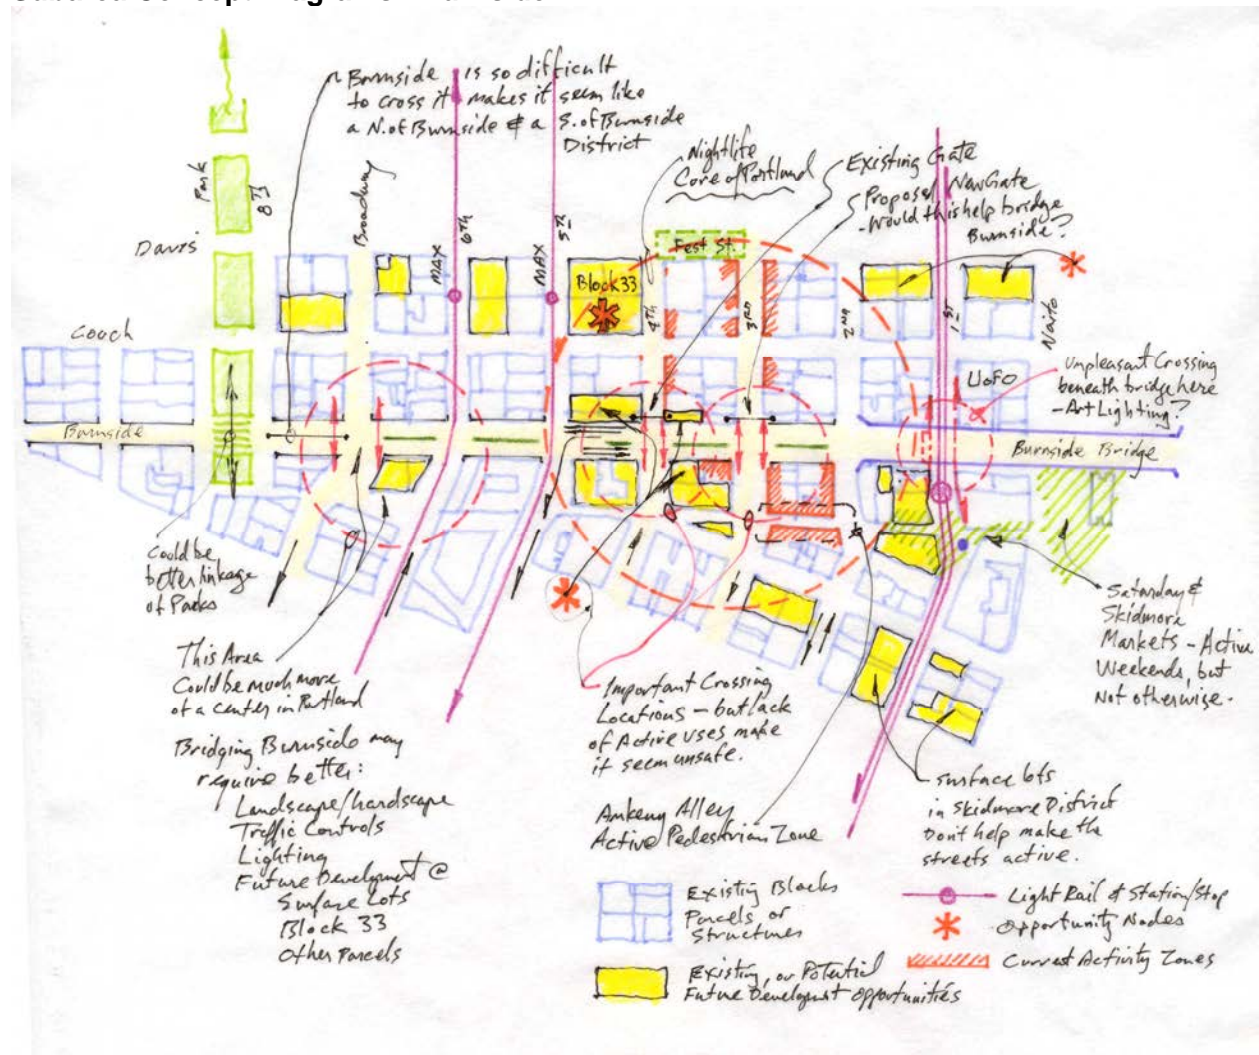 Burnside is so difficult
to cross it makes it seem like
a N. of Burnside & a S. of Burnside
District
Nightlife
Core of Portland
Existing Gate
Proposed New Gate
- Would this help bridge
Burnside?
Park
8th
Davis
Broadway
MAX
6th
MAX
5th
Fest St.
Block 33
4th
3rd
2nd
1st
Naito
Couch
UofO
Unpleasant Crossing
beneath bridge here
- Art Lighting?
Burnside
Burnside Bridge
Could be
better linkage
of Parks
This Area
Could be much more
of a center in Portland
Bridging Burnside may
require better:
Landscape/hardscape
Traffic Controls
Lighting
Future Development @
Surface Lots
Block 33
Other Parcels
Important Crossing
Locations - but lack
of Active uses make
it seem unsafe.
Ankeny Alley
Active Pedestrian Zone
Saturday &
Skidmore
Markets - Active
Weekends, but
Not otherwise.
Surface lots
in Skidmore District
Don't help make the
streets active.
Existing Blocks
Parcels or
Structures
Existing, or Potential
Future Developmt Opportunities
Light Rail & Station/Stop
Opportunity Nodes
Current Activity Zones